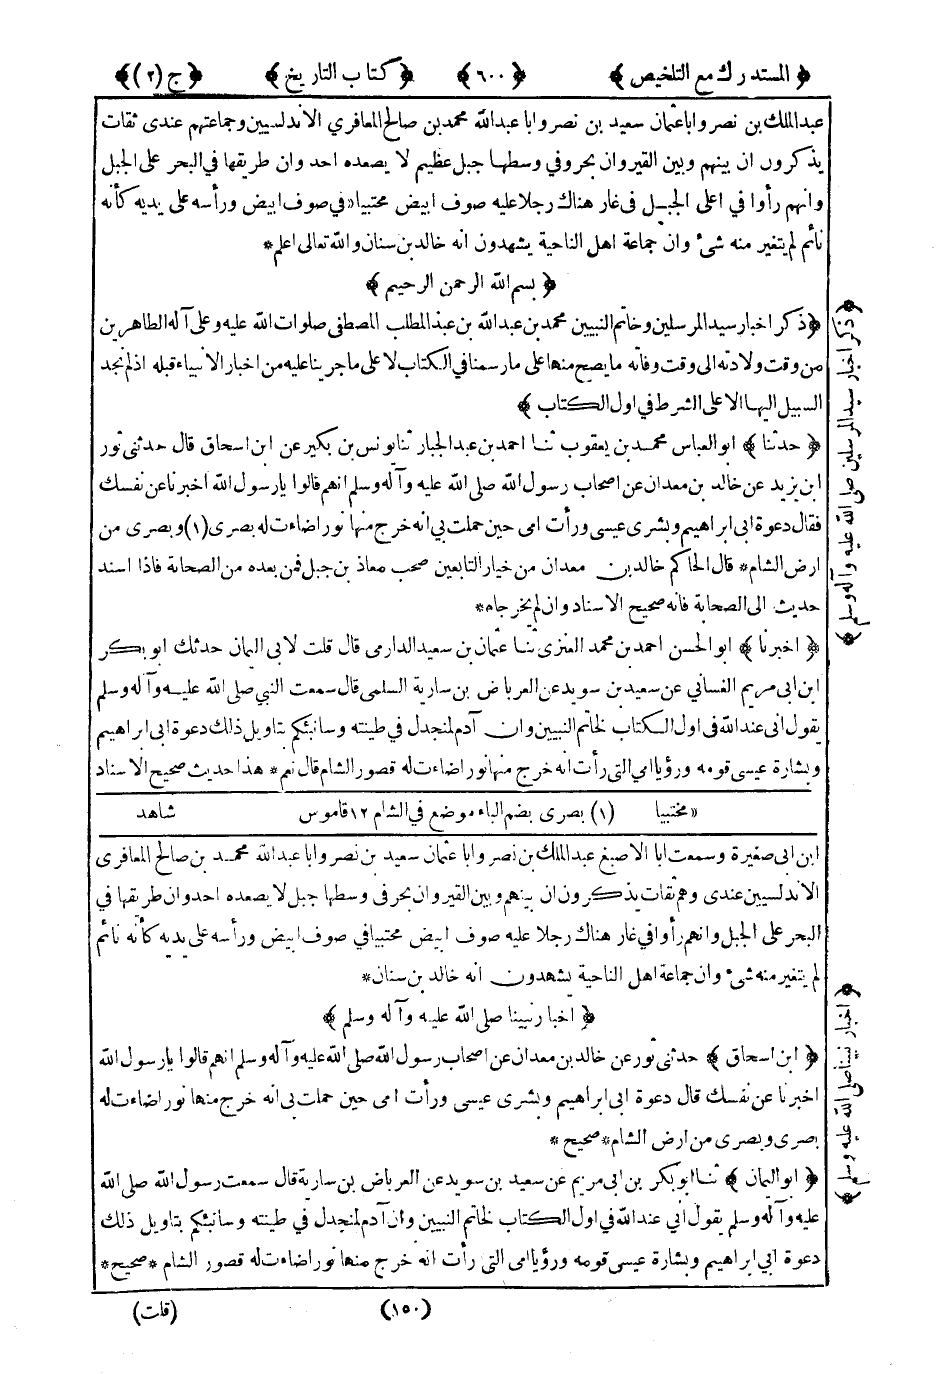 ﴿ المستدرك مع التلخيص ﴾ ﴿ ٦٠٠ ﴾ ﴿ كتاب التاريخ ﴾ ﴿ ج (٢) ﴾
عبدالملك بن نصر وابا عثمان سعيد بن نصر وابا عبدالله محمد بن صالح المعافري الاندلسيين وجماعتهم عندى ثقات
يذكرون ان بينهم وبين القيروان بحر وفي وسطها جبل عظيم لا يصعده احد وان طريقها في البحر على الجبل
وانهم رأوا في اعلى الجبل فى غار هناك رجلا عليه صوف ابيض محتبيا« في صوف ابيض ورأسه على يديه كأنه
نائم لم يتغير منه شئ وان جماعة اهل الناحية يشهدون انه خالد بن سنان والله تعالى اعلم *
﴿ بسم الله الرحمن الرحيم ﴾
﴿ ذكر اخبار سيد المرسلين وخاتم النبيين محمد بن عبدالله بن عبدالمطلب المصطفى صلوات الله عليه وعلى آله الطاهرين
من وقت ولادته الى وقت وفاته ما يصح منها على مارسمنا في الكتاب لا على ماجرينا عليه من اخبار الانبياء قبله اذ لم نجد
السبيل اليها الا على الشرط في اول الكتاب ﴾
﴿ حدثنا ﴾ ابو العباس محمد بن يعقوب ثنا احمد بن عبدالجبار ثنا يونس بن بكير عن ابن اسحاق قال حدثنى ثور
ابن يزيد عن خالد بن معدان عن اصحاب رسول الله صلى الله عليه وآله وسلم انهم قالوا يا رسول الله أخبرنا عن نفسك
فقال دعوة ابى ابراهيم وبشرى عيسى ورأت امى حين حملت بى انه خرج منها نور اضاءت له بصرى (١) وبصرى من
ارض الشام * قال الحاكم خالد بن معدان من خيار التابعين صحب معاذ بن جبل فمن بعده من الصحابة فاذا اسند
حديث الى الصحابة فانه صحيح الاسناد وان لم يخرجاه *
﴿ اخبرنا ﴾ ابو الحسن احمد بن محمد العنزى ثنا عثمان بن سعيد الدارمى قال قلت لابى اليمان حدثك ابو بكر
ابن ابى مريم الغسانى عن سعيد بن سويد عن العرباض بن سارية السلمى قال سمعت النبي صلى الله عليه وآله وسلم
يقول انى عند الله فى اول الكتاب لخاتم النبيين وان آدم لمنجدل في طينته وسانبئكم بتاويل ذلك دعوة ابى ابراهيم
وبشارة عيسى قومه ورؤيا امي التى رأت انه خرج منها نور اضاءت له قصور الشام قال نعم * هذا حديث صحيح الاسناد
« محتبيا (١) بصرى بضم الباء موضع في الشام ١٢ قاموس شاهد
ابن ابى صغيرة وسمعت ابا الاصبغ عبدالملك بن نصر وابا عثمان سعيد بن نصر وابا عبدالله محمد بن صالح المعافرى
الاندلسيين عندى وهم ثقات يذكرون ان بينهم وبين القيروان بحر فى وسطها جبل لا يصعده احد وان طريقها في
البحر على الجبل وانهم رأوا في غار هناك رجلا عليه صوف ابيض محتبيا في صوف ابيض ورأسه على يديه كأنه نائم
لم يتغير منه شئ وان جماعة اهل الناحية يشهدون انه خالد بن سنان *
﴿ اخبار نبينا صلى الله عليه وآله وسلم ﴾
﴿ ابن اسحاق ﴾ حدثنى ثور عن خالد بن معدان عن اصحاب رسول الله صلى الله عليه وآله وسلم انهم قالوا يا رسول الله
اخبرنا عن نفسك قال دعوة ابى ابراهيم وبشرى عيسى ورأت امى حين حملت بى انه خرج منها نور اضاءت له
بصرى وبصرى من ارض الشام * صحيح *
﴿ ابو اليمان ﴾ ثنا ابو بكر بن ابى مريم عن سعيد بن سويد عن العرباض بن سارية قال سمعت رسول الله صلى الله
عليه وآله وسلم يقول انى عند الله في اول الكتاب لخاتم النبيين وان آدم لمنجدل في طينته وسانبئكم بتاويل ذلك
دعوة ابى ابراهيم وبشارة عيسى قومه ورؤيا امى التى رأت انه خرج منها نور اضاءت له قصور الشام * صحيح *
﴿ ذكر اخبار سيد المرسلين صلى الله عليه وآله وسلم ﴾
﴿ اخبار نبينا صلى الله عليه وسلم ﴾
(١٥٠) (قلت)